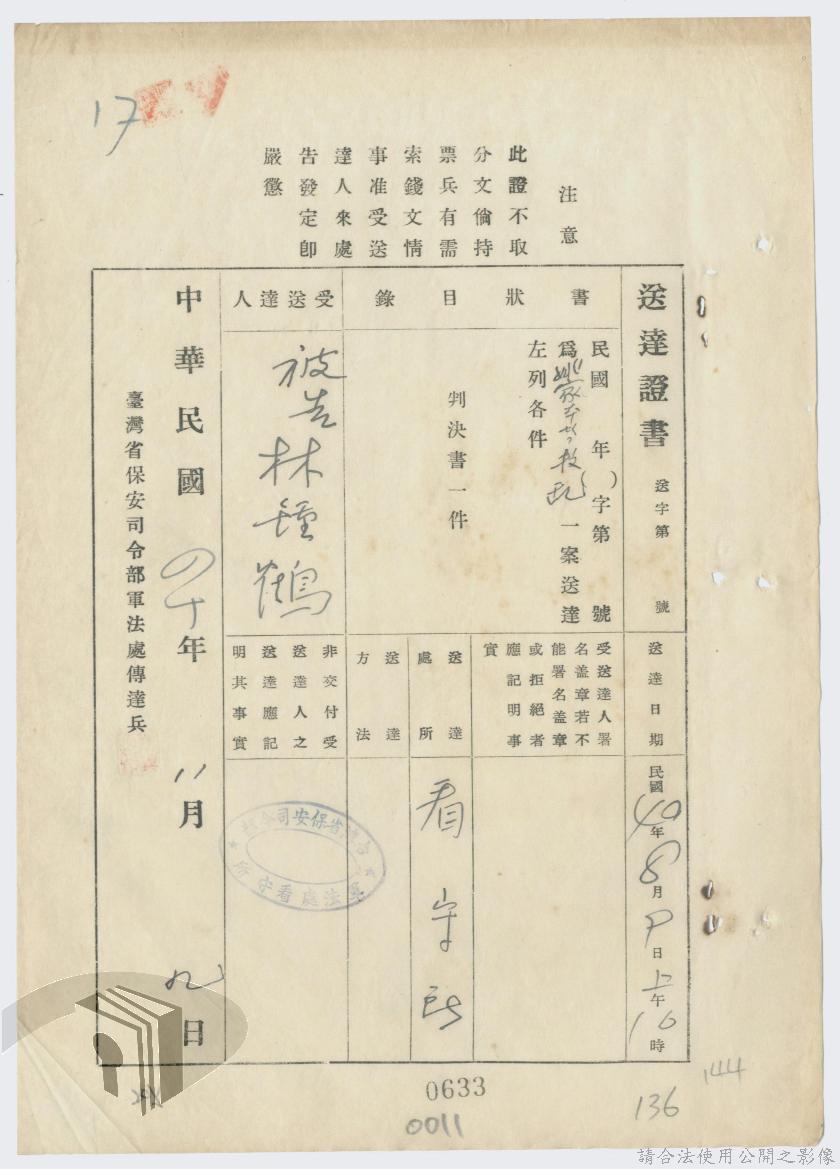 17
注意
此證不取
分文倘持
票兵有需
索錢文情
事准受送
達人來處
告發定卽
嚴懲
送達證書 送字第 號
送達日期
民國40年8月9日上午10時
書狀目錄
民國 年( )字第 號
爲 一案送達
左列各件
判決書一件
受送達人署
名盖章若不
能署名盖章
或拒絕者
應記明事
實
送達處所
看守所
送達方法
受送達人
被告林鍾鶴
非交付受
送達人之
送達應記
明其事實
軍法處看守所
中華民國四十年11月九日
臺灣省保安司令部軍法處傳達兵
0633
0011
136
144
請合法使用公開之影像